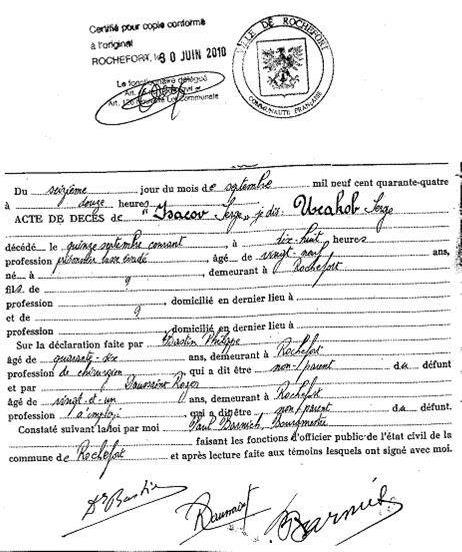 Certifié pour copie conforme
à l'original
ROCHEFORT, le 30 JUIN 2010
Le fonctionnaire délégué
Art. 126 Nouvelle Loi Communale
VILLE DE ROCHEFORT
COMMUNAUTÉ FRANÇAISE
Du seizième jour du mois de septembre mil neuf cent quarante-quatre
à douze heures
ACTE DE DECÈS de "Isacov Serge" je dis: Usakob Serge
décédé le quinze septembre courant à dix-huit heures
profession prisonnier russe évadé, âgé de vingt-neuf ans,
né à ?, demeurant à Rochefort
fils de ?
profession, domicilié en dernier lieu à
et de ?
profession, domicilié en dernier lieu à
Sur la déclaration faite par Bastin Philippe
âgé de quarante-six ans, demeurant à Rochefort
profession de chirurgien qui a dit être non/parent du défunt
et par Toussaint Roger
âgé de vingt-et-un ans, demeurant à Rochefort
profession d'employé, qui a dit être non/parent du défunt.
Constaté suivant la loi par moi Paul Barnich, Bourgmestre
faisant les fonctions d'officier public de l'état civil de la
commune de Rochefort et après lecture faite aux témoins lesquels ont signé avec moi.
Dr Bastin